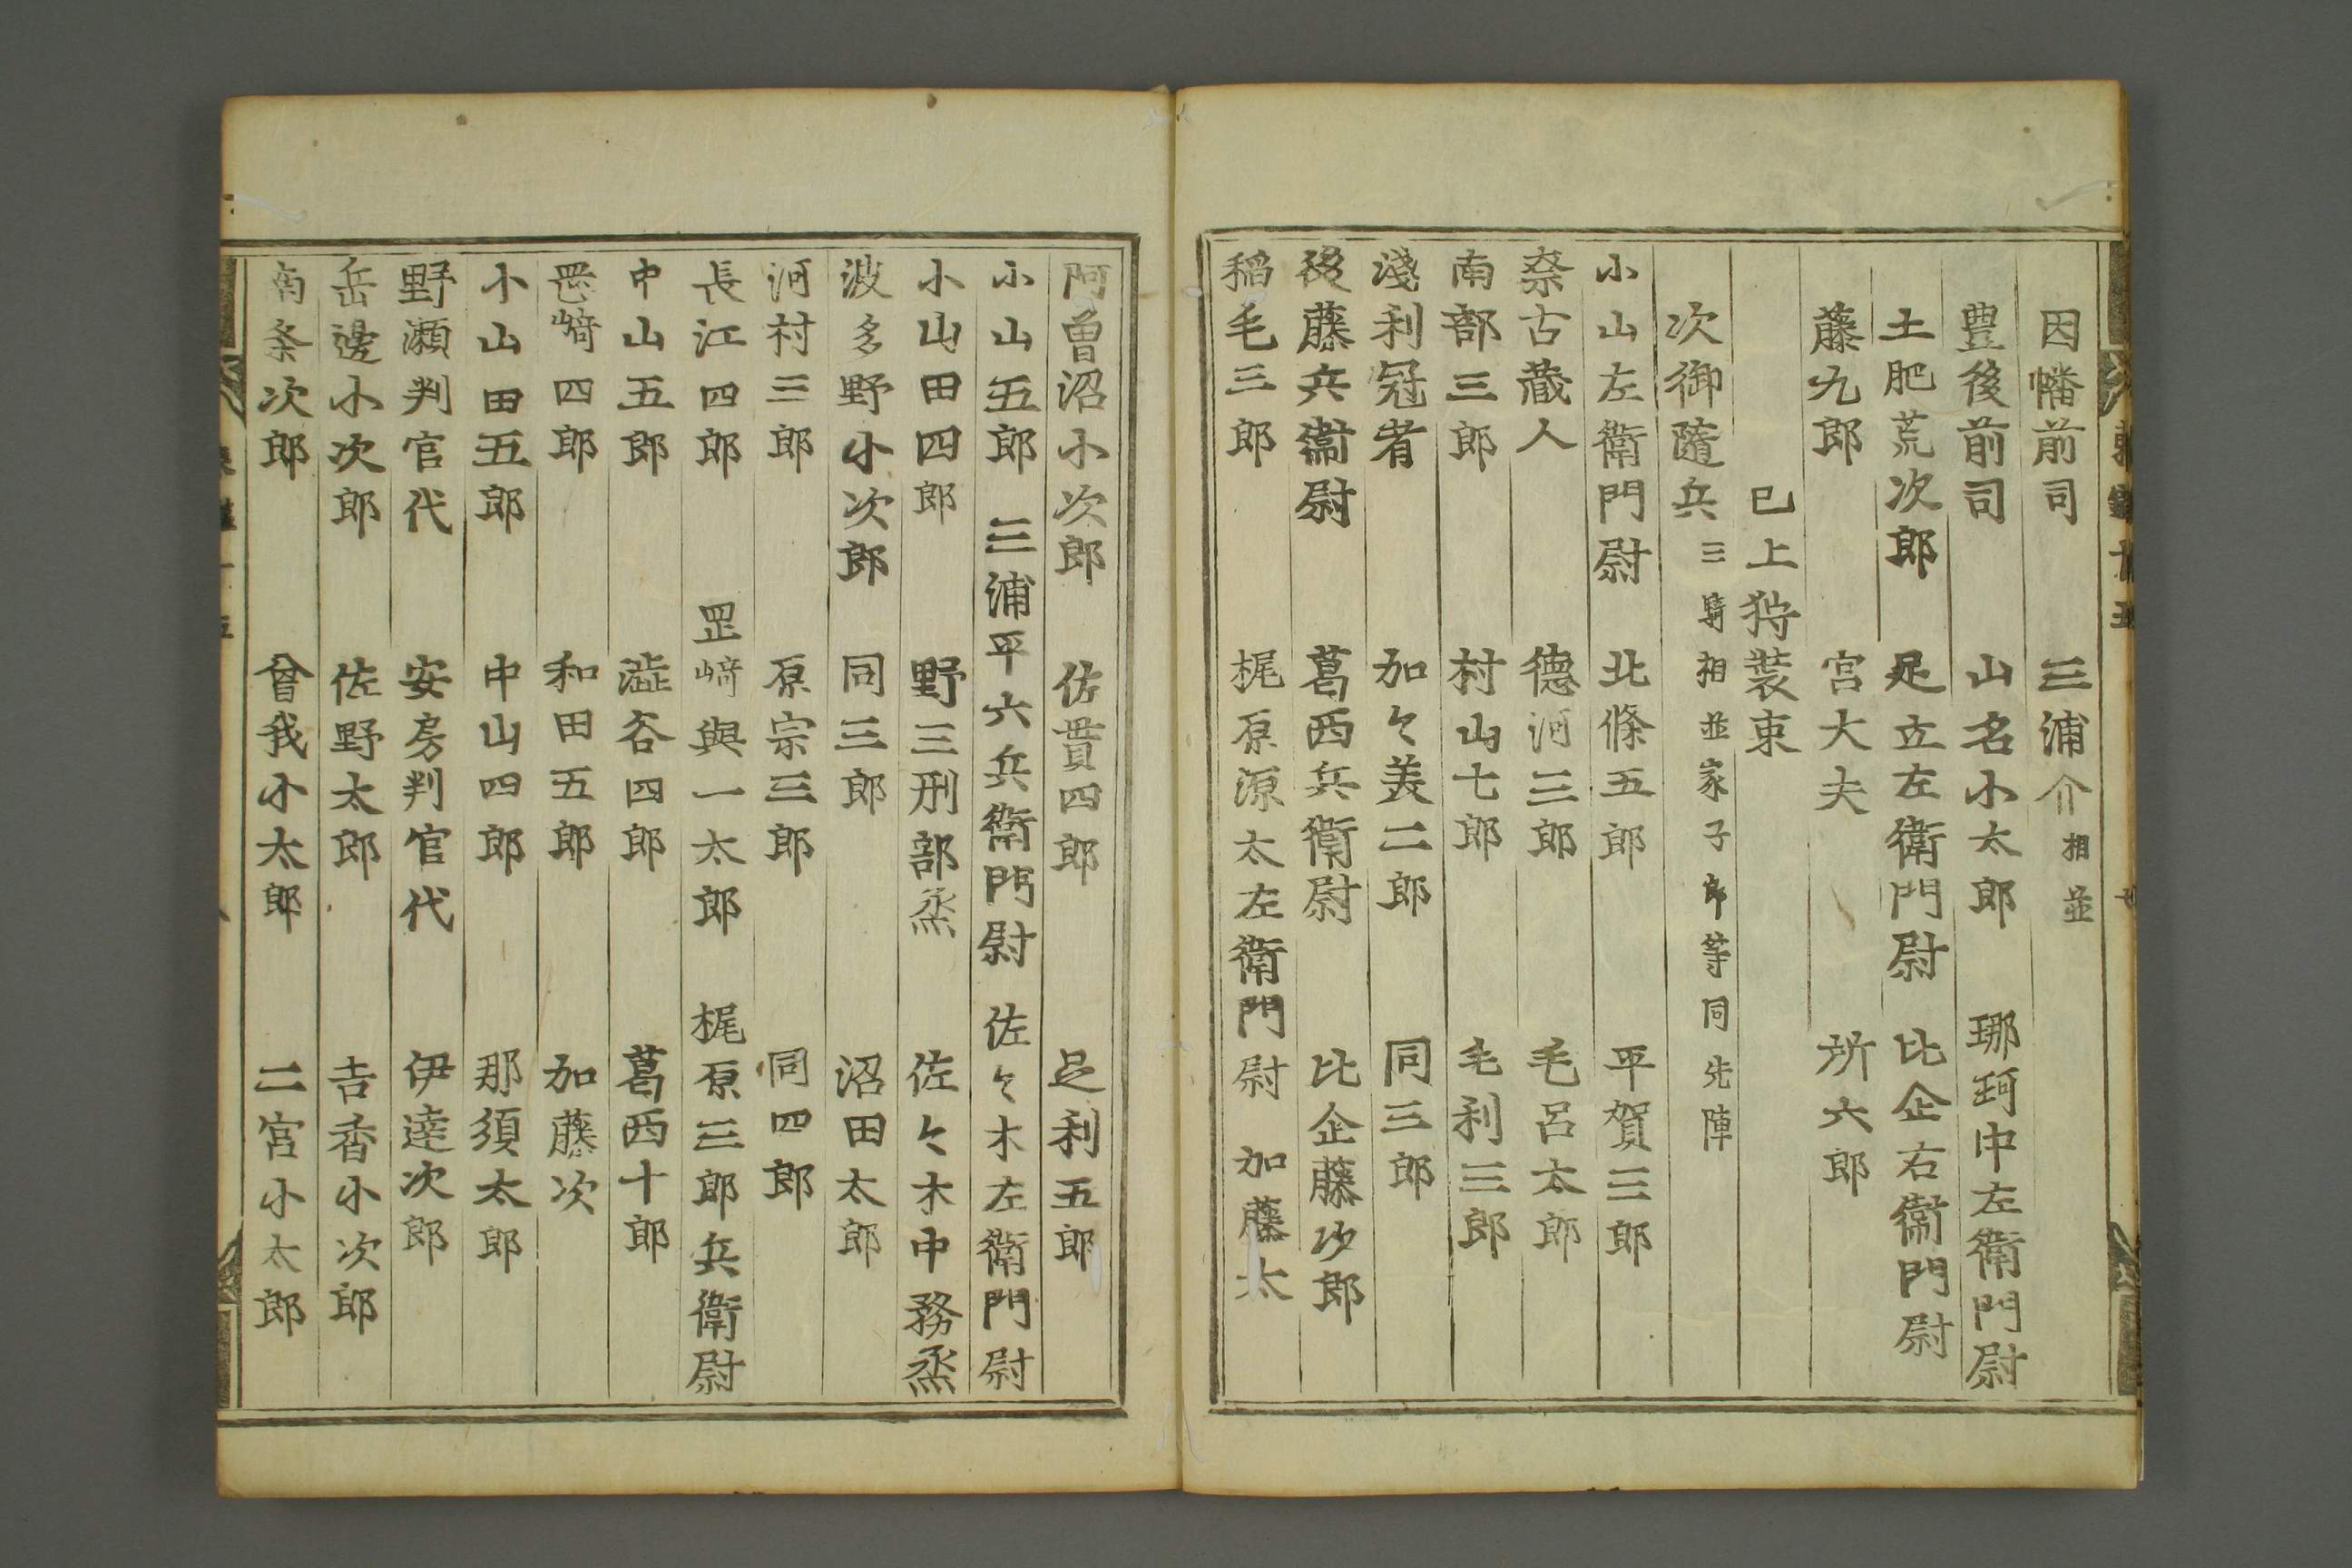 因幡前司　三浦介相並
豊後前司　山名小太郎　那珂中左衛門尉
土肥荒次郎　足立左衛門尉　比企右衛門尉
藤九郎　宮大夫　所六郎
已上狩装束
次御隨兵三騎相並家子郎等同先陣
小山左衛門尉　北條五郎　平賀三郎
奈古蔵人　德河三郎　毛呂太郎
南部三郎　村山七郎　毛利三郎
淺利冠者　加々美二郎　同三郎
後藤兵衛尉　葛西兵衛尉　比企藤次郎
稲毛三郎　梶原源太左衛門尉　加藤太
阿曽沼小次郎　佐貫四郎　足利五郎
小山五郎　三浦平六兵衛門尉　佐々木左衛門尉
小山田四郎　野三刑部烝　佐々木中務烝
波多野小次郎　同三郎　沼田太郎
河村三郎　原宗三郎　同四郎
長江四郎　罡﨑與一太郎　梶原三郎兵衛尉
中山五郎　澁谷四郎　葛西十郎
罡﨑四郎　和田五郎　加藤次
小山田五郎　中山四郎　那須太郎
野瀬判官代　安房判官代　伊達次郎
岳邊小次郎　佐野太郎　吉香小次郎
南条次郎　曾我小太郎　二宮小太郎